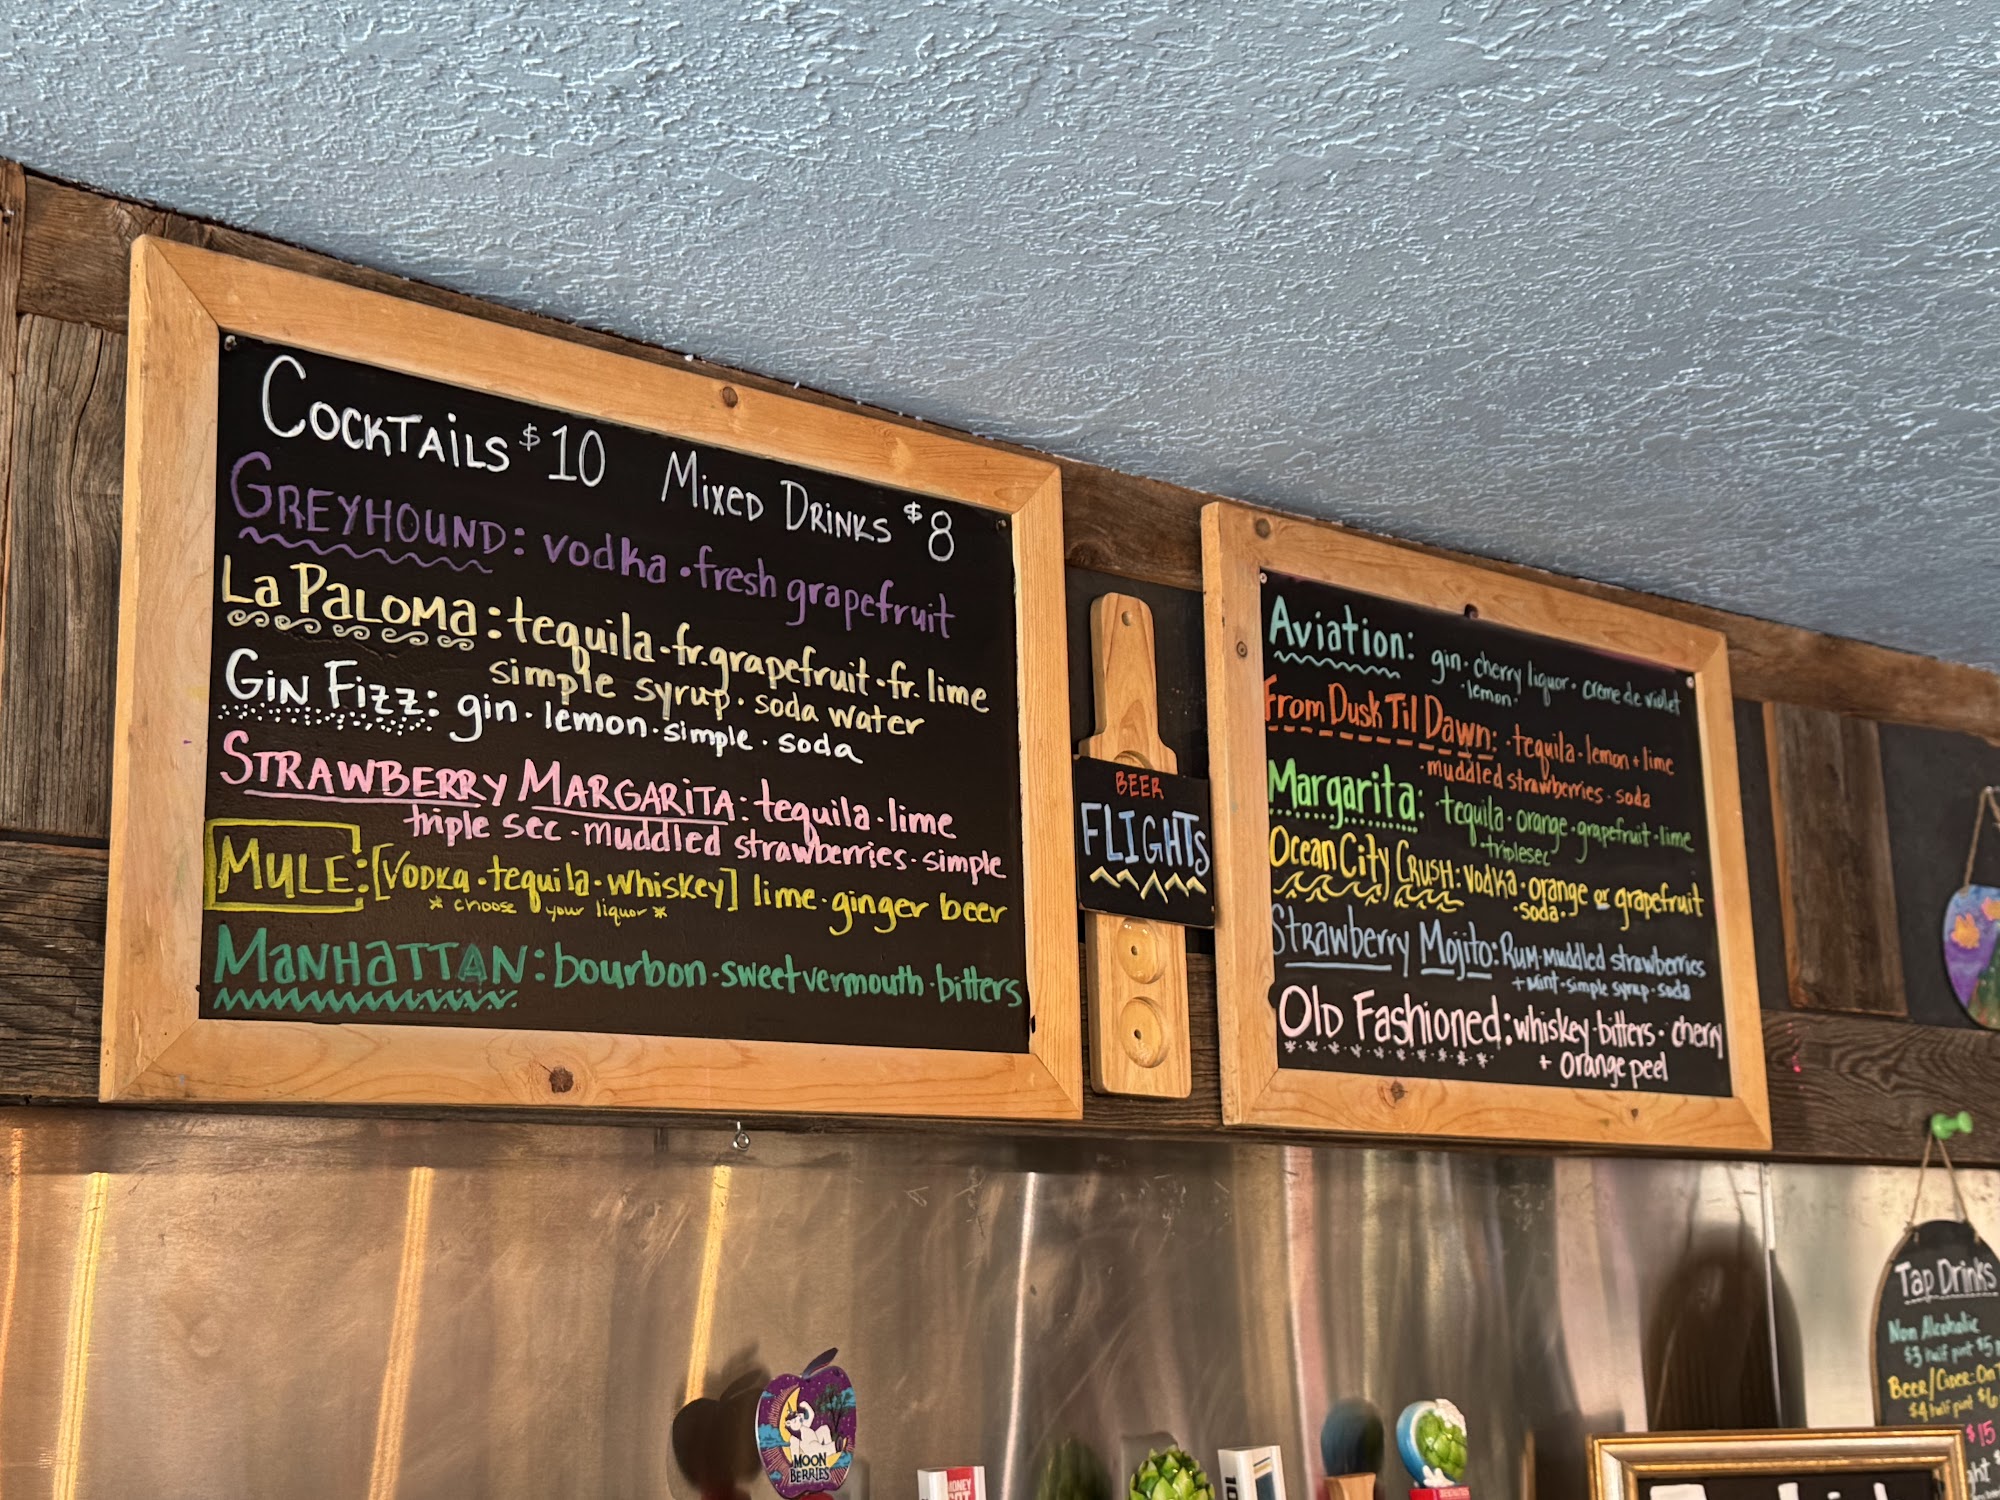 Cocktails $10 Mixed Drinks $8
Greyhound: vodka · fresh grapefruit
La Paloma: tequila · fr. grapefruit · fr. lime
simple syrup · soda water
Gin Fizz: gin · lemon · simple · soda
Strawberry Margarita: tequila · lime
triple sec · muddled strawberries · simple
Mule: [Vodka · tequila · whiskey] lime · ginger beer
* choose your liquor *
Manhattan: bourbon · sweet vermouth · bitters
BEER
FLIGHTS
Aviation: gin · cherry liquor · creme de violet
· lemon ·
From Dusk Til Dawn: · tequila · lemon + lime
· muddled strawberries · soda
Margarita: · tequila · orange · grapefruit · lime
· triplesec
Ocean City Crush: vodka · orange or grapefruit
· soda ·
Strawberry Mojito: Rum · muddled strawberries
+ mint · simple syrup · soda
Old Fashioned: whiskey · bitters · cherry
+ orange peel
Tap Drinks
Non Alcoholic
$3 half pint $5
Beer/Cider: On
$4 half pint $6
$15
MOON
BERRIES